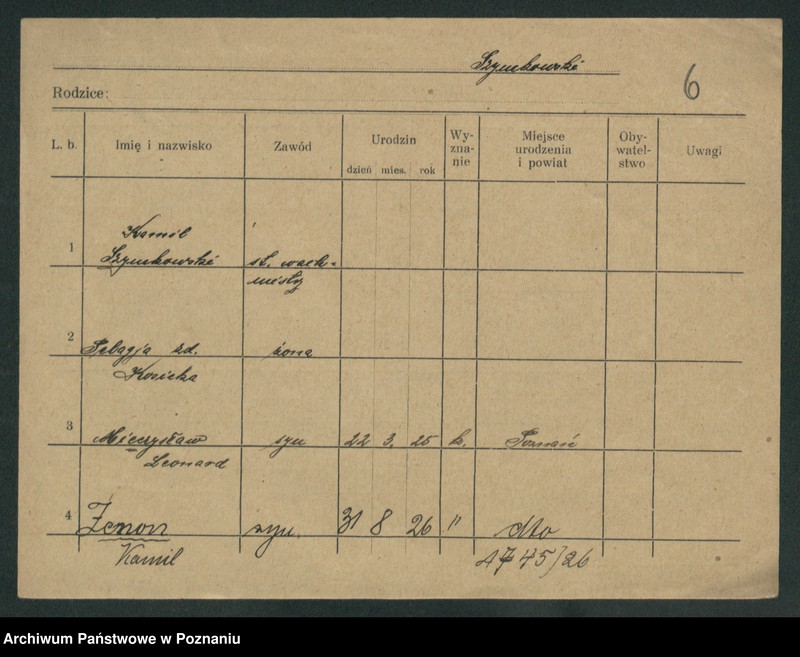 Szymkowski
6
Rodzice:
L. b. Imię i nazwisko Zawód Urodzin dzień mies. rok Wy-zna-nie Miejsce urodzenia i powiat Oby-watel-stwo Uwagi
1 Kamil
Szymkowski st. wach-
mistrz
2 Pelagja zd. żona
Kosicka
3 Mieczysław syn 22 3. 25 k. Poznań
Leonard
4 Zenon syn. 31 8 26 " dto
Kamil 1745/26
Archiwum Państwowe w Poznaniu